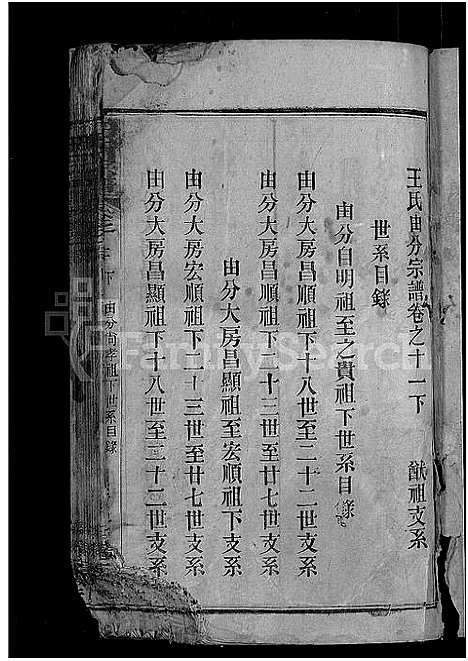 王氏由分宗譜卷之十一下 猷祖支系
世系目錄
由分自明祖至之貴祖下世系目錄
由分大房昌順祖下十八世至二十二世支系
由分大房昌順祖下二十三世至廿七世支系
由分大房昌顯祖至宏順祖下支系
由分大房宏順祖下二十三世至廿七世支系
由分大房昌顯祖下十八世至二十二世支系
下 由分尚孝祖下世系目錄
FamilySearch